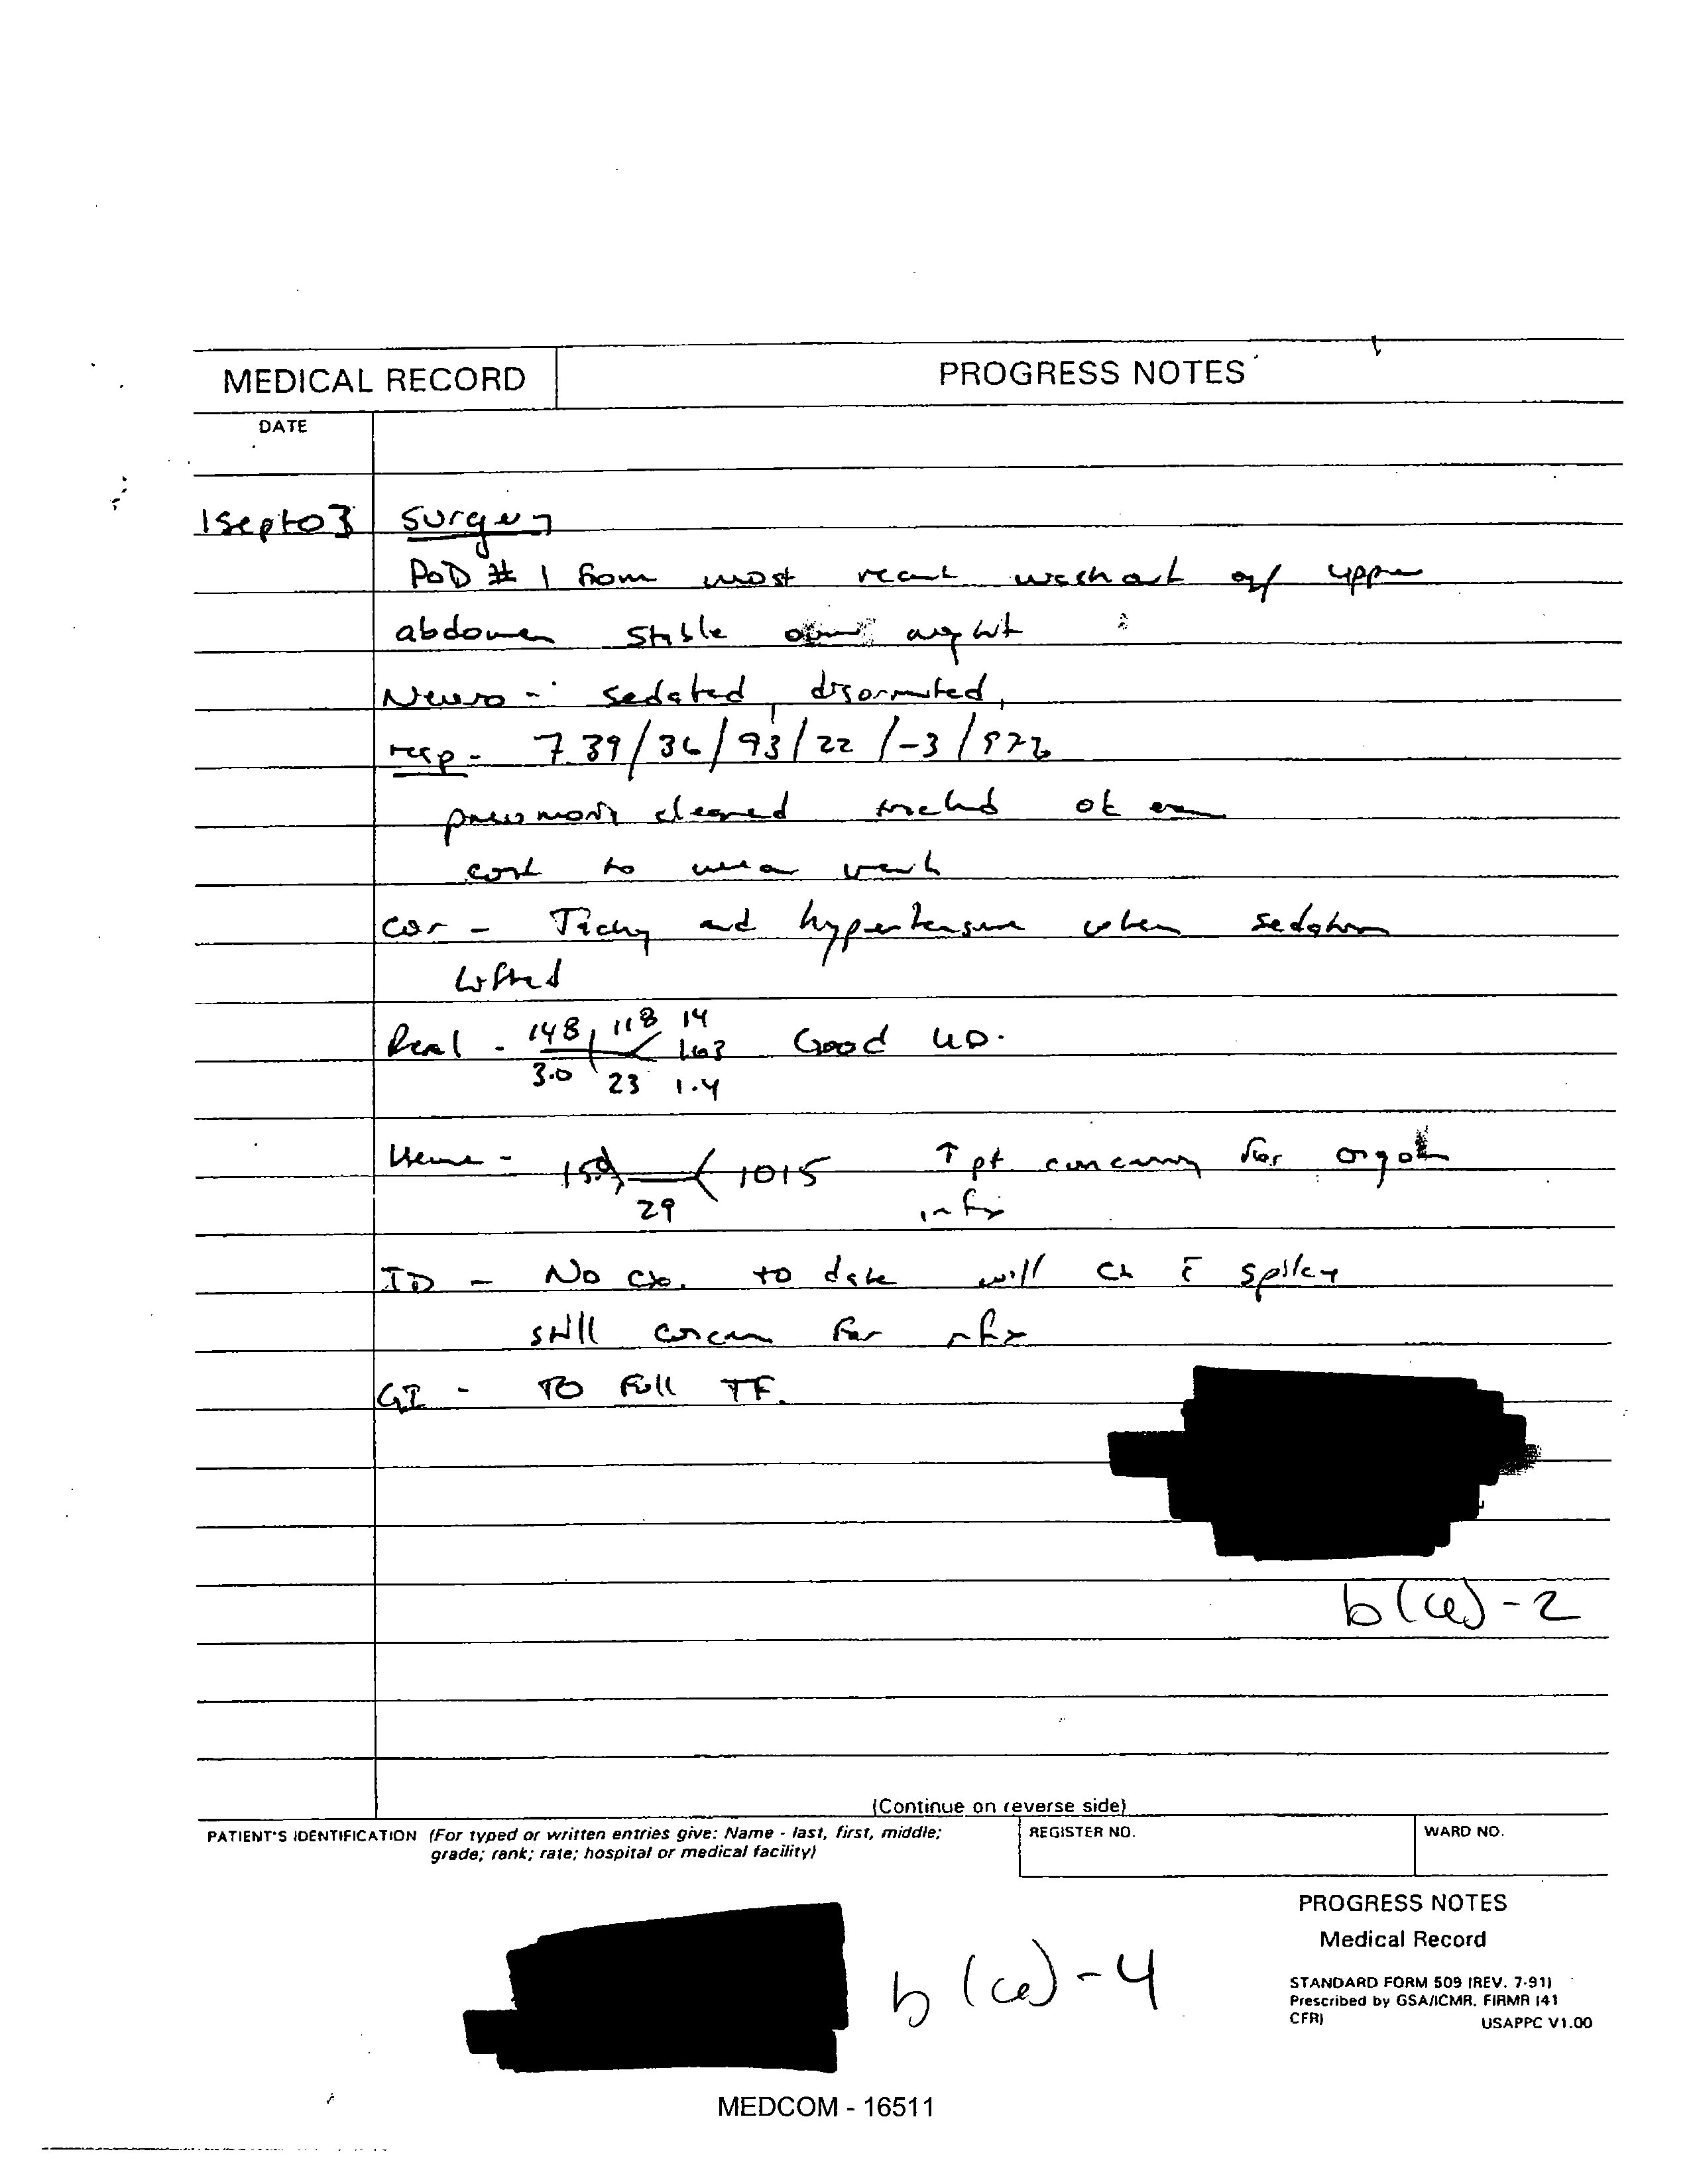 MEDICAL RECORD
PROGRESS NOTES
DATE
1Sept03 Surgery
POD # 1 from most recent washout of upper
abdomen stable
Neuro - sedated, disoriented,
resp - 7.39/36/93/22/-3/97%
pneumonia cleared ok
cont to wean vent
Cor - Tachy and hypertensive when sedation
lifted
Renal - 148 118 14 163 Good UO.
3.0 23 1.4
Heme - 1015 ↑ plt concerning for
29 infx
ID - No cx. to date will
still concern for infx
GI - TO Full TF.
b(6)-2
(Continue on reverse side)
PATIENT'S IDENTIFICATION (For typed or written entries give: Name - last, first, middle;
grade; rank; rate; hospital or medical facility)
REGISTER NO.
WARD NO.
PROGRESS NOTES
Medical Record
STANDARD FORM 509 (REV. 7-91)
Prescribed by GSA/ICMR, FIRMR (41
CFR)
USAPPC V1.00
b(6)-4
MEDCOM - 16511